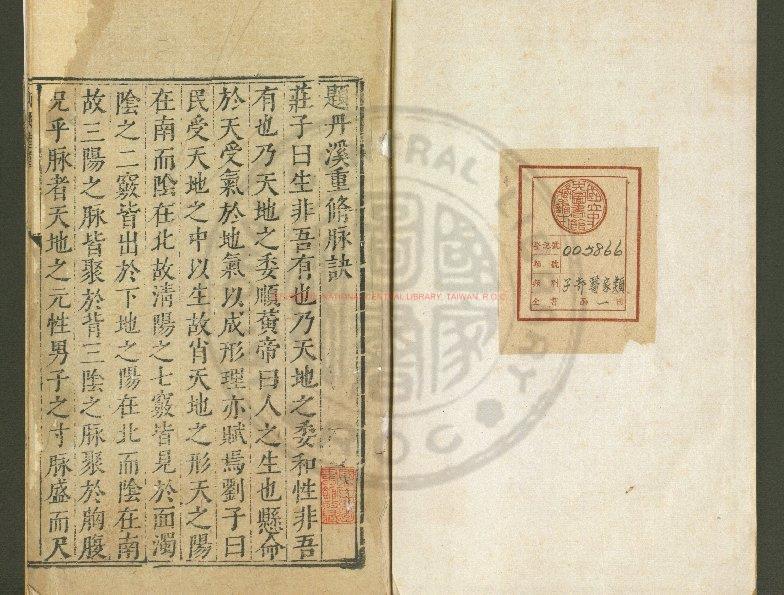 題丹溪重脩脉訣
莊子曰生非吾有也乃天地之委和性非吾
有也乃天地之委順黃帝曰人之生也懸命
於天受氣於地氣以成形理亦賦焉劉子曰
民受天地之中以生故肖天地之形天之陽
在南而陰在北故清陽之七竅皆見於面濁
陰之二竅皆出於下地之陽在北而陰在南
故三陽之脉皆聚於背三陰之脉聚於胸腹
况乎脉者天地之元性男子之寸脉盛而尺
登記號 003866
類別 子部醫家類
全書 函一冊
NATIONAL CENTRAL LIBRARY, TAIWAN, R.O.C